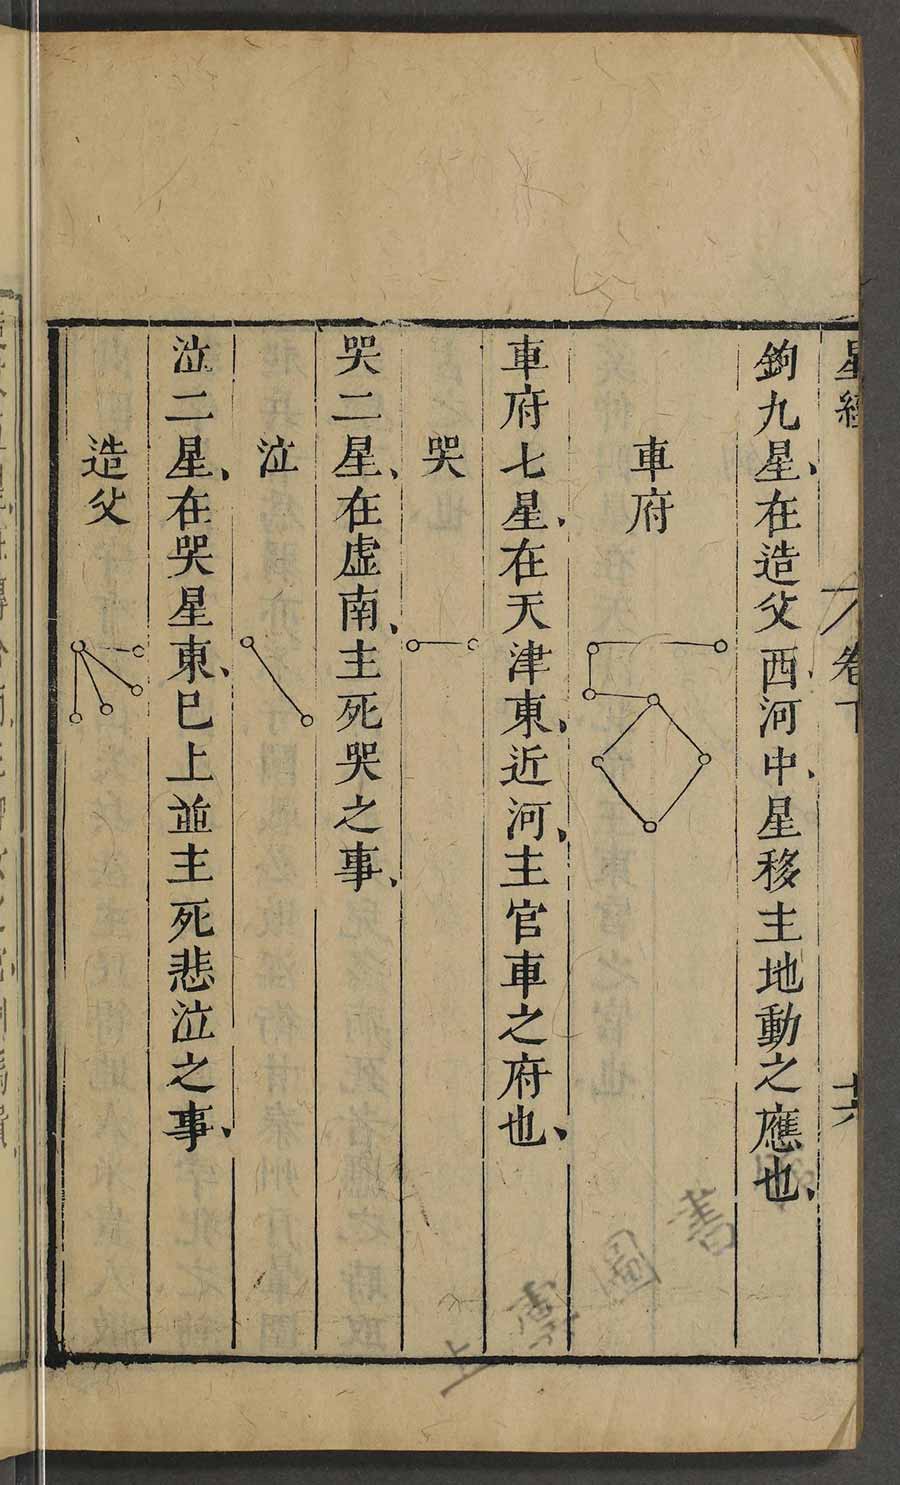 星經
卷下
鉤九星、在造父西河中、星移主地動之應也、
車府
車府七星、在天津東、近河、主官車之府也、
哭
哭二星、在虛南、主死哭之事、
泣
泣二星、在哭星東、巳上並主死悲泣之事、
造父